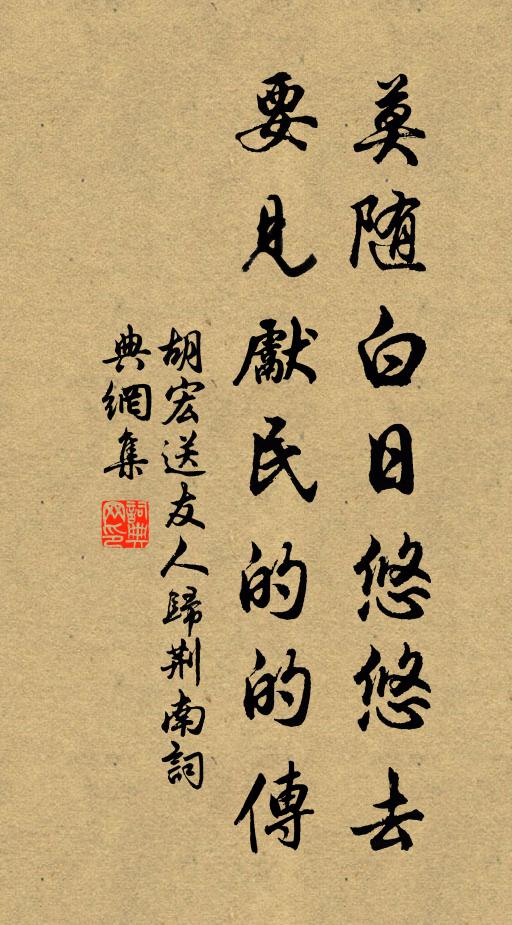 莫随白日悠悠去
要見獻民的的傳
胡宏送友人歸荆南詞
典網集
詞典
网印